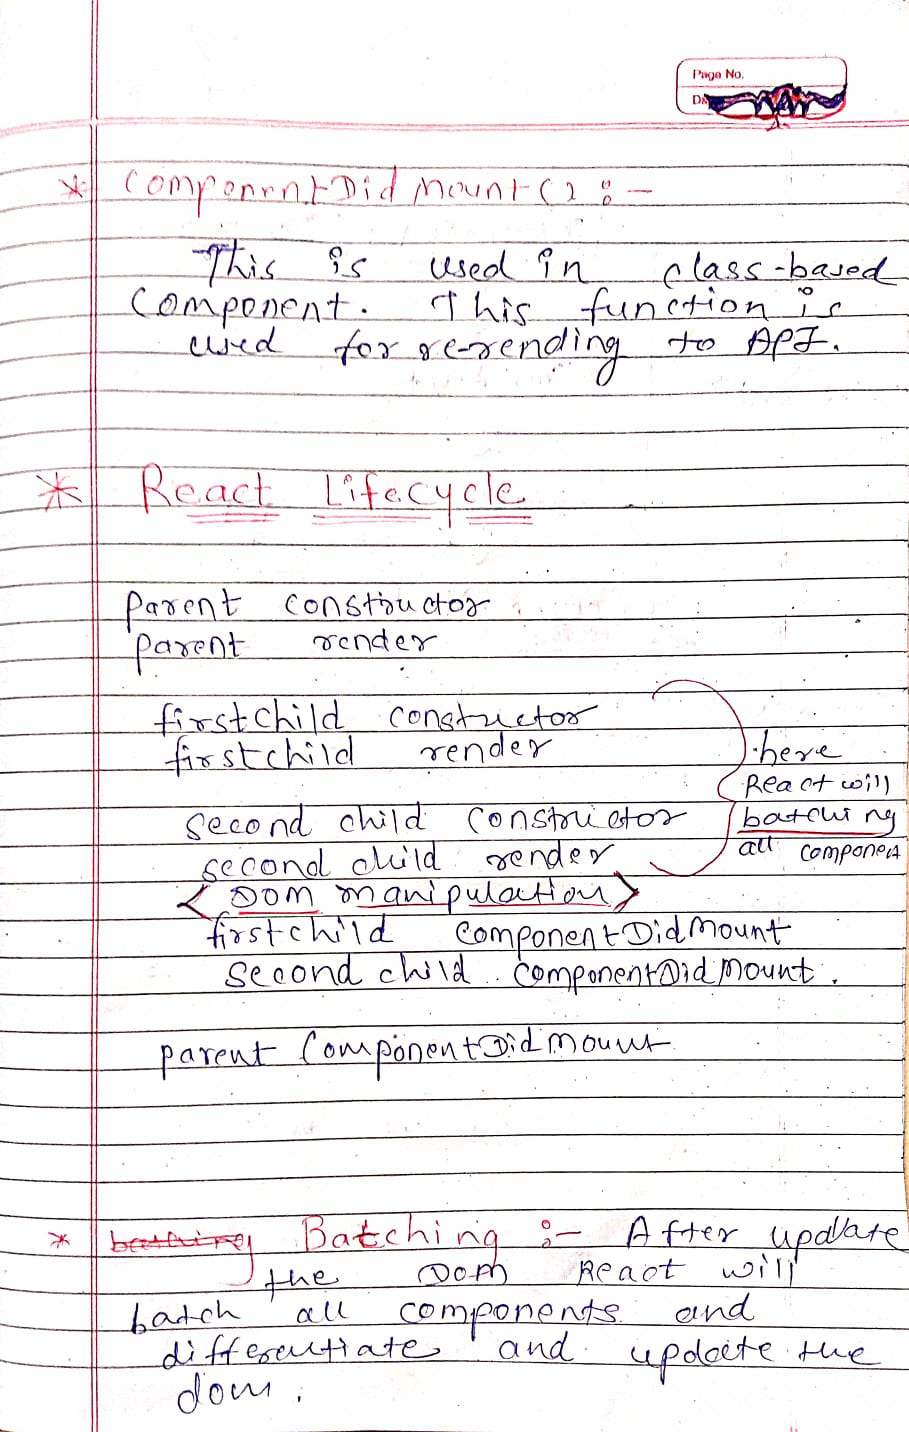 Page No.
* ComponentDidMount() :-
This is used in class-based
component. This function is
used for re-rending to API.
* React Lifecycle
parent constructor
parent render
firstchild constructor
firstchild render
here
React will
batching
all component
second child constructor
second child render
<DOM manipulation>
firstchild componentDidMount
second child componentDidMount.
parent ComponentDidMount
* batching Batching :- After update
the DOM React will
batch all components and
differentiate and update the
dom.